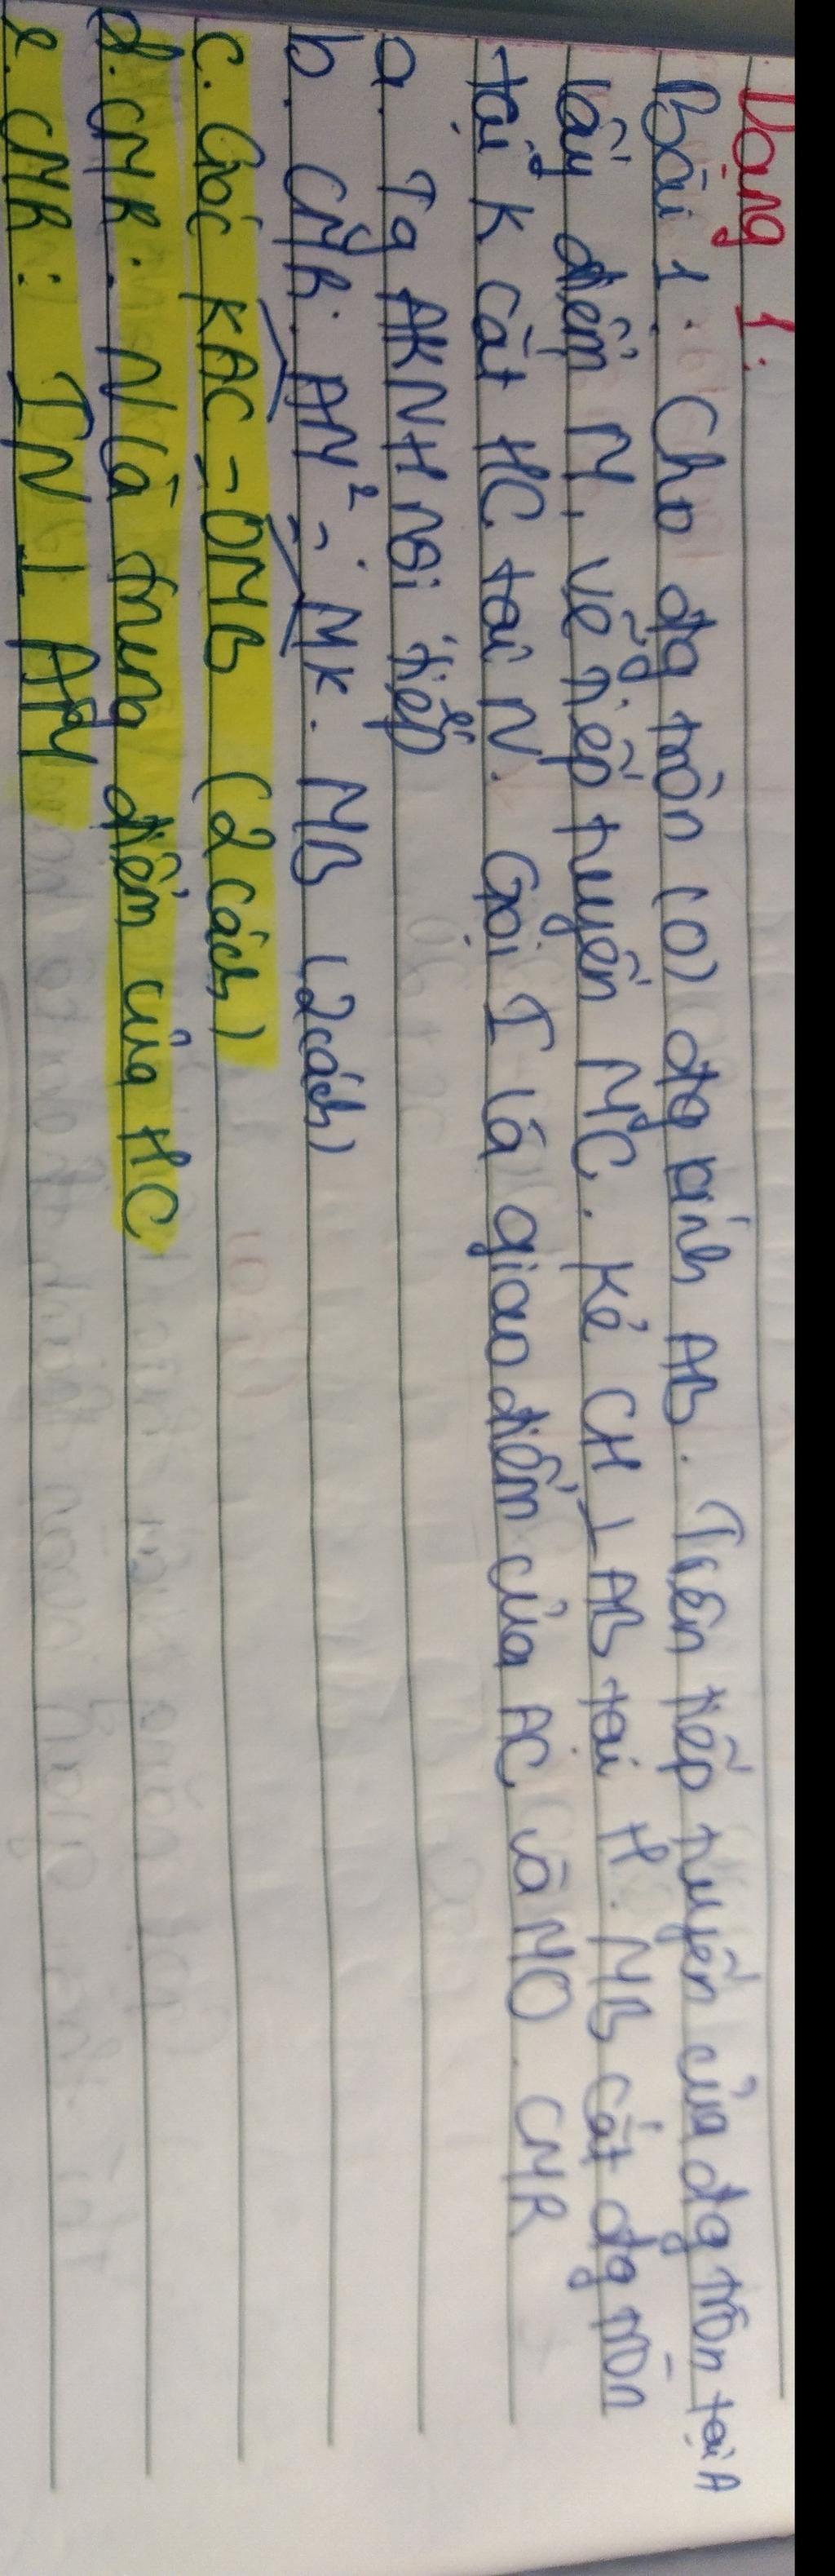 Dạng 1:
Bài 1: Cho đg tròn (O) đg kính AB. Trên tiếp tuyến của đg tròn tại A
lấy điểm M, vẽ tiếp tuyến MC. Kẻ CH ⊥ AB tại H. MB cắt đg tròn
tại K cắt HC tại N. Gọi I là giao điểm của AC và MO. CMR
a. Tg AKNH nội tiếp
b. CMR: AM² = MK. MB (2 cách)
c. Góc KAC = OMB (2 cách)
d. CMR: N là trung điểm của HC
e. CMR: IN ⊥ AM